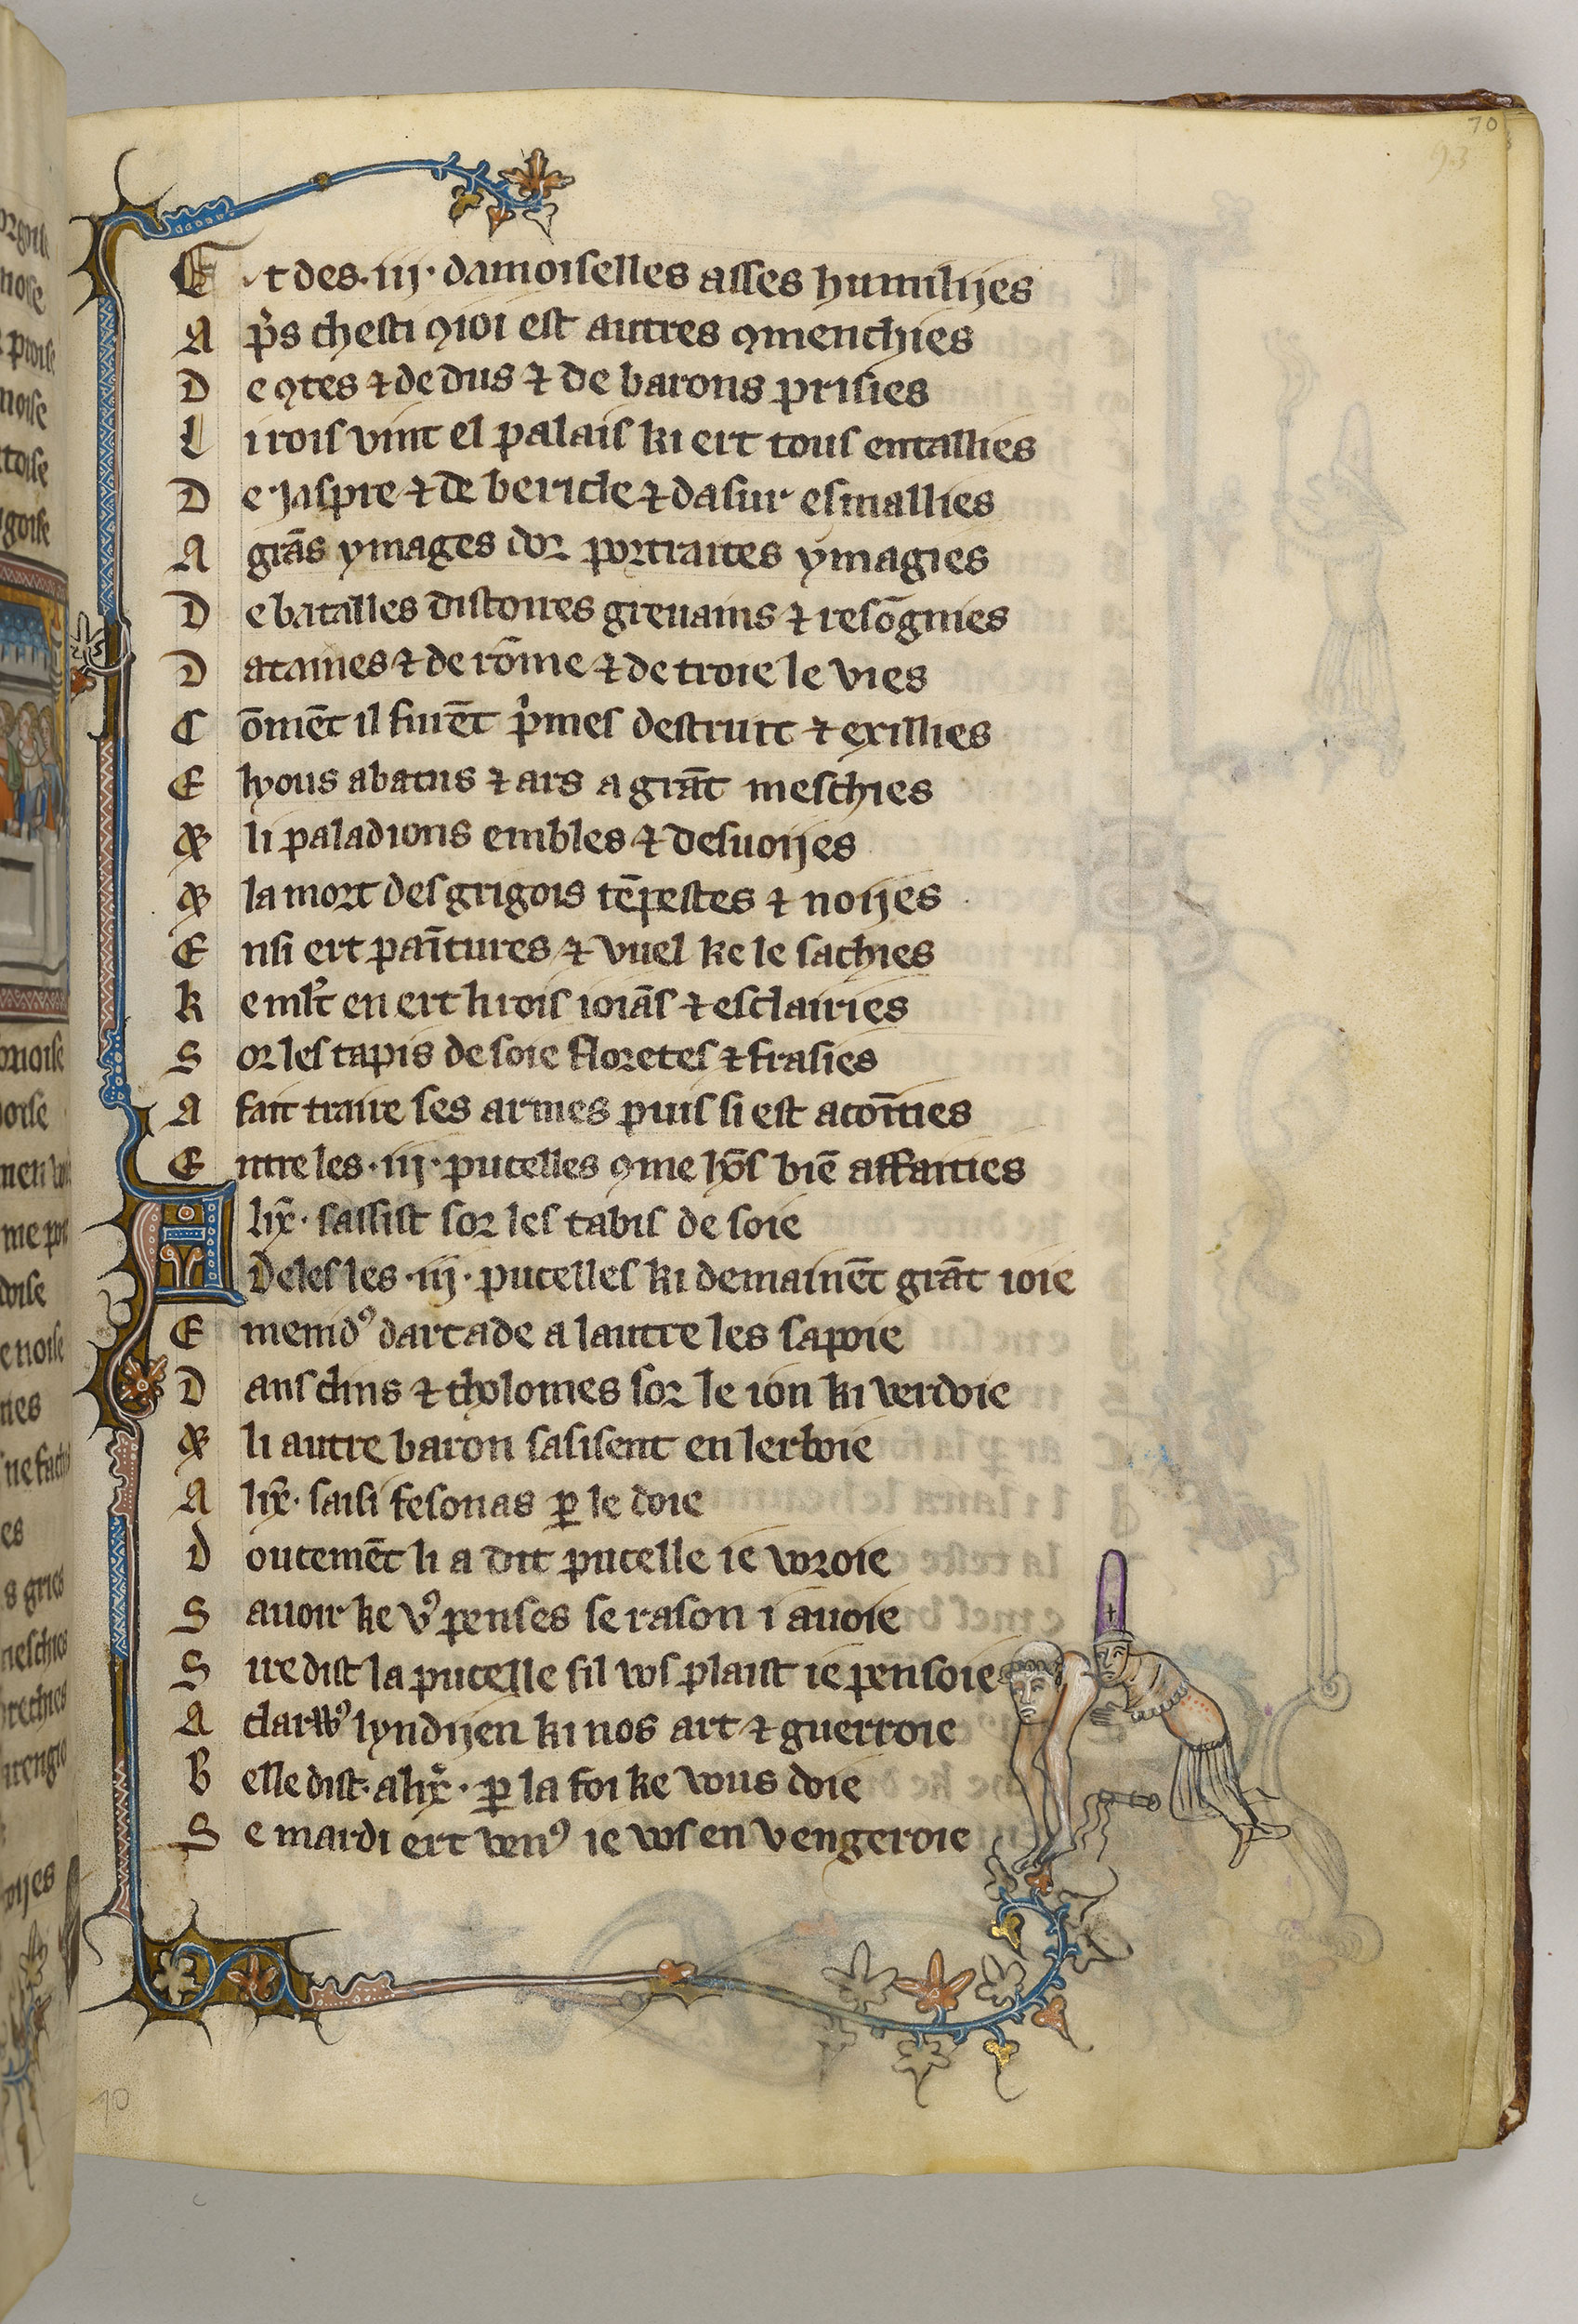 70
93
Et des .iij. damoiselles asses humilijes
A pˢs chesti ꝯioi est autres ꝯmenchies
D e ꝯtes ⁊ de dus ⁊ de barons prisies
L i rois vint el palais ki ert tous entallies
D e jaspre ⁊ de bericle ⁊ dasur esmallies
A grās ymages dor portraites ymagies
D e batalles distoires greuains ⁊ resōgnies
D ataines ⁊ de rōme ⁊ de troie le vies
C ōmēt il furēt pˢmes destruit ⁊ exillies
E lyous abatus ⁊ ars a grāt meschies
⁊ li paladions embles ⁊ desuoijes
⁊ la mort des grigois tēpestes ⁊ noijes
E nsi ert paītures ⁊ vuel ke le sachies
K e mlt en ert li rois ioiās ⁊ esclairies
S or les tapis de soie floretes ⁊ frasies
A fait traire ses armes puis si est acoīties
E ntre les .iij. pucelles ꝯme hōs biē affaities
A lix̄. sassist sor les tabis de soie
Deles les .iij. pucelles ki demainēt grāt ioie
E menidꝰ darcade a lautre les sapoie
D ans clins ⁊ tholomes sor le ion ki verdoie
⁊ li autre baron sasisent en lerboie
A lix̄. saisi fesonas ꝑ le doie
D oucemēt li a dit pucelle ie voroie
S auoir ke vꝰ penses se rason i auoie
S ire dist la pucelle sil vos plaist ie pensoie
A clarwꝰ lyndijen ki nos art ⁊ guerroie
B elle dist. alix̄. ꝑ la foi ke vous doie
S e mardi ert venꝰ ie vos en vengeroie
70